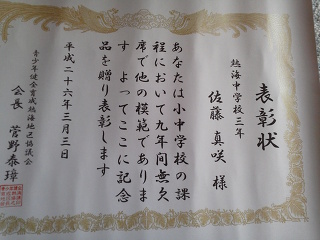 表彰状
熱海中学校三年
佐藤真咲様
あなたは小中学校の課
程において九年間無欠
席で他の模範でありま
す よってここに記念
品を贈り表彰します
平成二十六年三月三日
青少年健全育成熱海地区協議会
会長 菅野泰璋